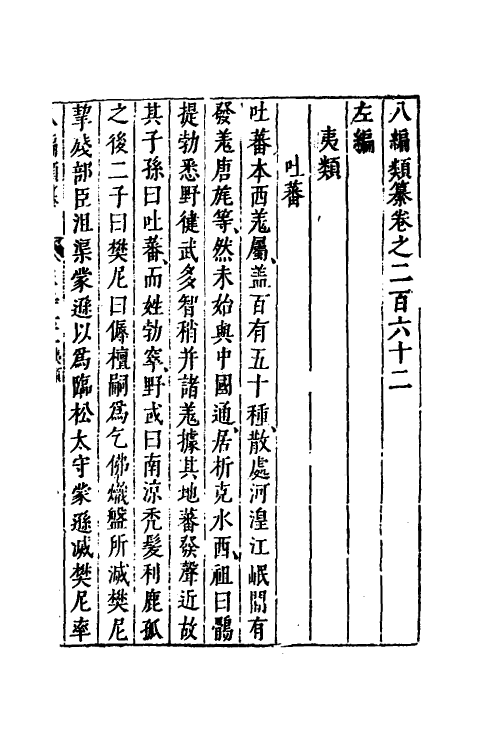 八編類纂卷之二百六十二
左編
夷類
吐蕃
吐蕃本西羗屬、盖百有五十種、散處河湟江岷間有
發羗唐旄等、然未始與中國通、居析克水西、祖曰鶻
提勃悉野健武多智稍并諸羗據其地蕃發聲近故
其子孫曰吐蕃、而姓勃窣、野或曰南涼禿髮利鹿孤
之後二子曰樊尼曰傉檀嗣爲乞佛熾盤所滅樊尼
挈殘部臣沮渠蒙遜以爲臨松太守蒙遜滅樊尼率